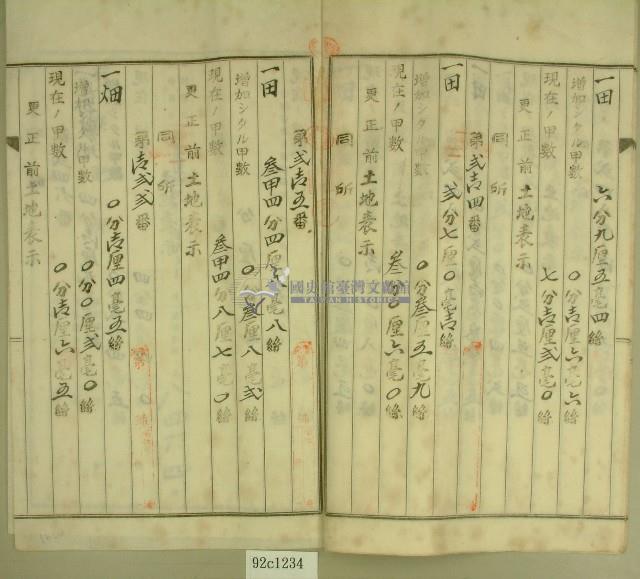 一田 六分九厘五毫四絲
増加シタル甲数 〇分壱厘六毫六絲
現在ノ甲数 七分壱厘弐毫〇絲
更正前土地表示
同所
第弐壱四番
一田 弐分七厘〇毫壱絲
増加シタル甲数 〇分参厘五毫九絲
現在ノ甲数 参分〇厘六毫〇絲
更正前土地表示
同所
第弐壱五番
一田 参甲四分四厘毫八絲
増加シタル甲数 〇参厘八毫弐絲
現在ノ甲数 参甲四分八厘七毫〇
更正前土地表示
同所
第壱弐弐番
一畑 〇分壱厘四毫五絲
増加シタル甲数 〇分〇厘弐毫〇絲
現在ノ甲数 〇分壱厘六毫五絲
更正前土地表示
國史館臺灣文獻館
TAIWAN HISTORICA
92c1234